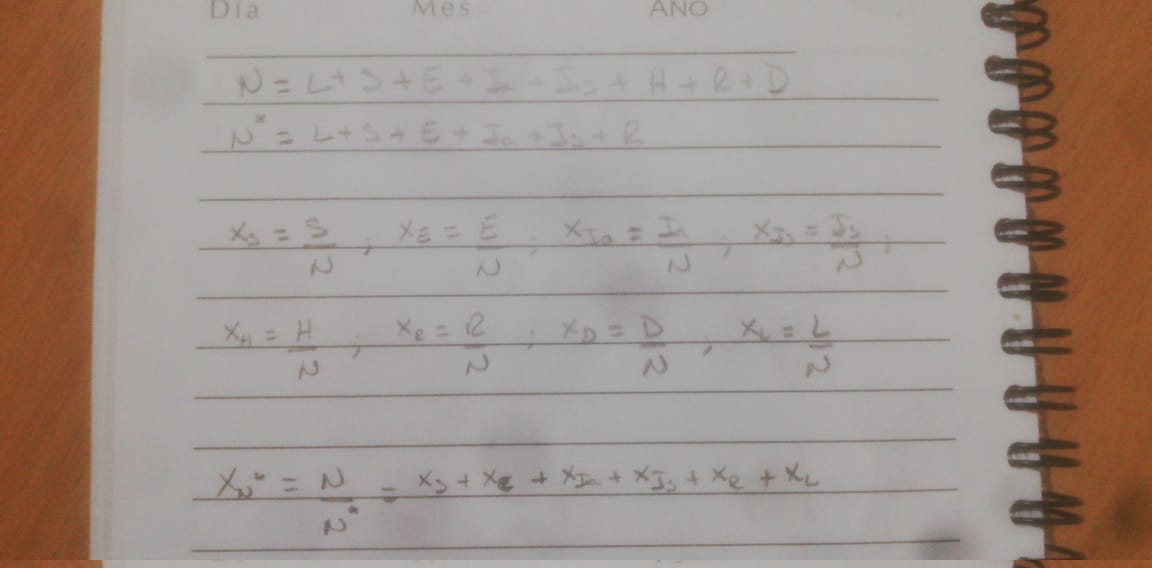 Día Mes AÑO
N = L + S + E + Ia + Is + H + R + D
N* = L + S + E + Ia + Is + R
xs = S/N ; xE = E/N ; xIa = Ia/N ; xIs = Is/N ;
xH = H/N ; xR = R/N ; xD = D/N ; xL = L/N
xN* = N/N* = xs + xE + xIa + xIs + xR + xL